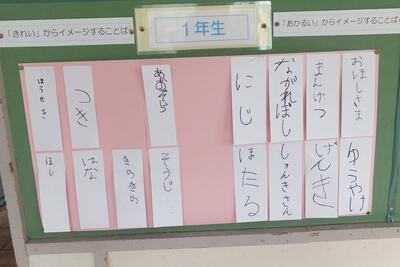 「きれい」からイメージすることば
1年生
「あかるい」からイメージすることば
おほしさま
まんげつ
ながれぼし
にじ
あおぞら
つき
ほうせき
ゆうやけ
げんき
しゅんきさん
ほたる
そうじ
きらきら
はな
ほし